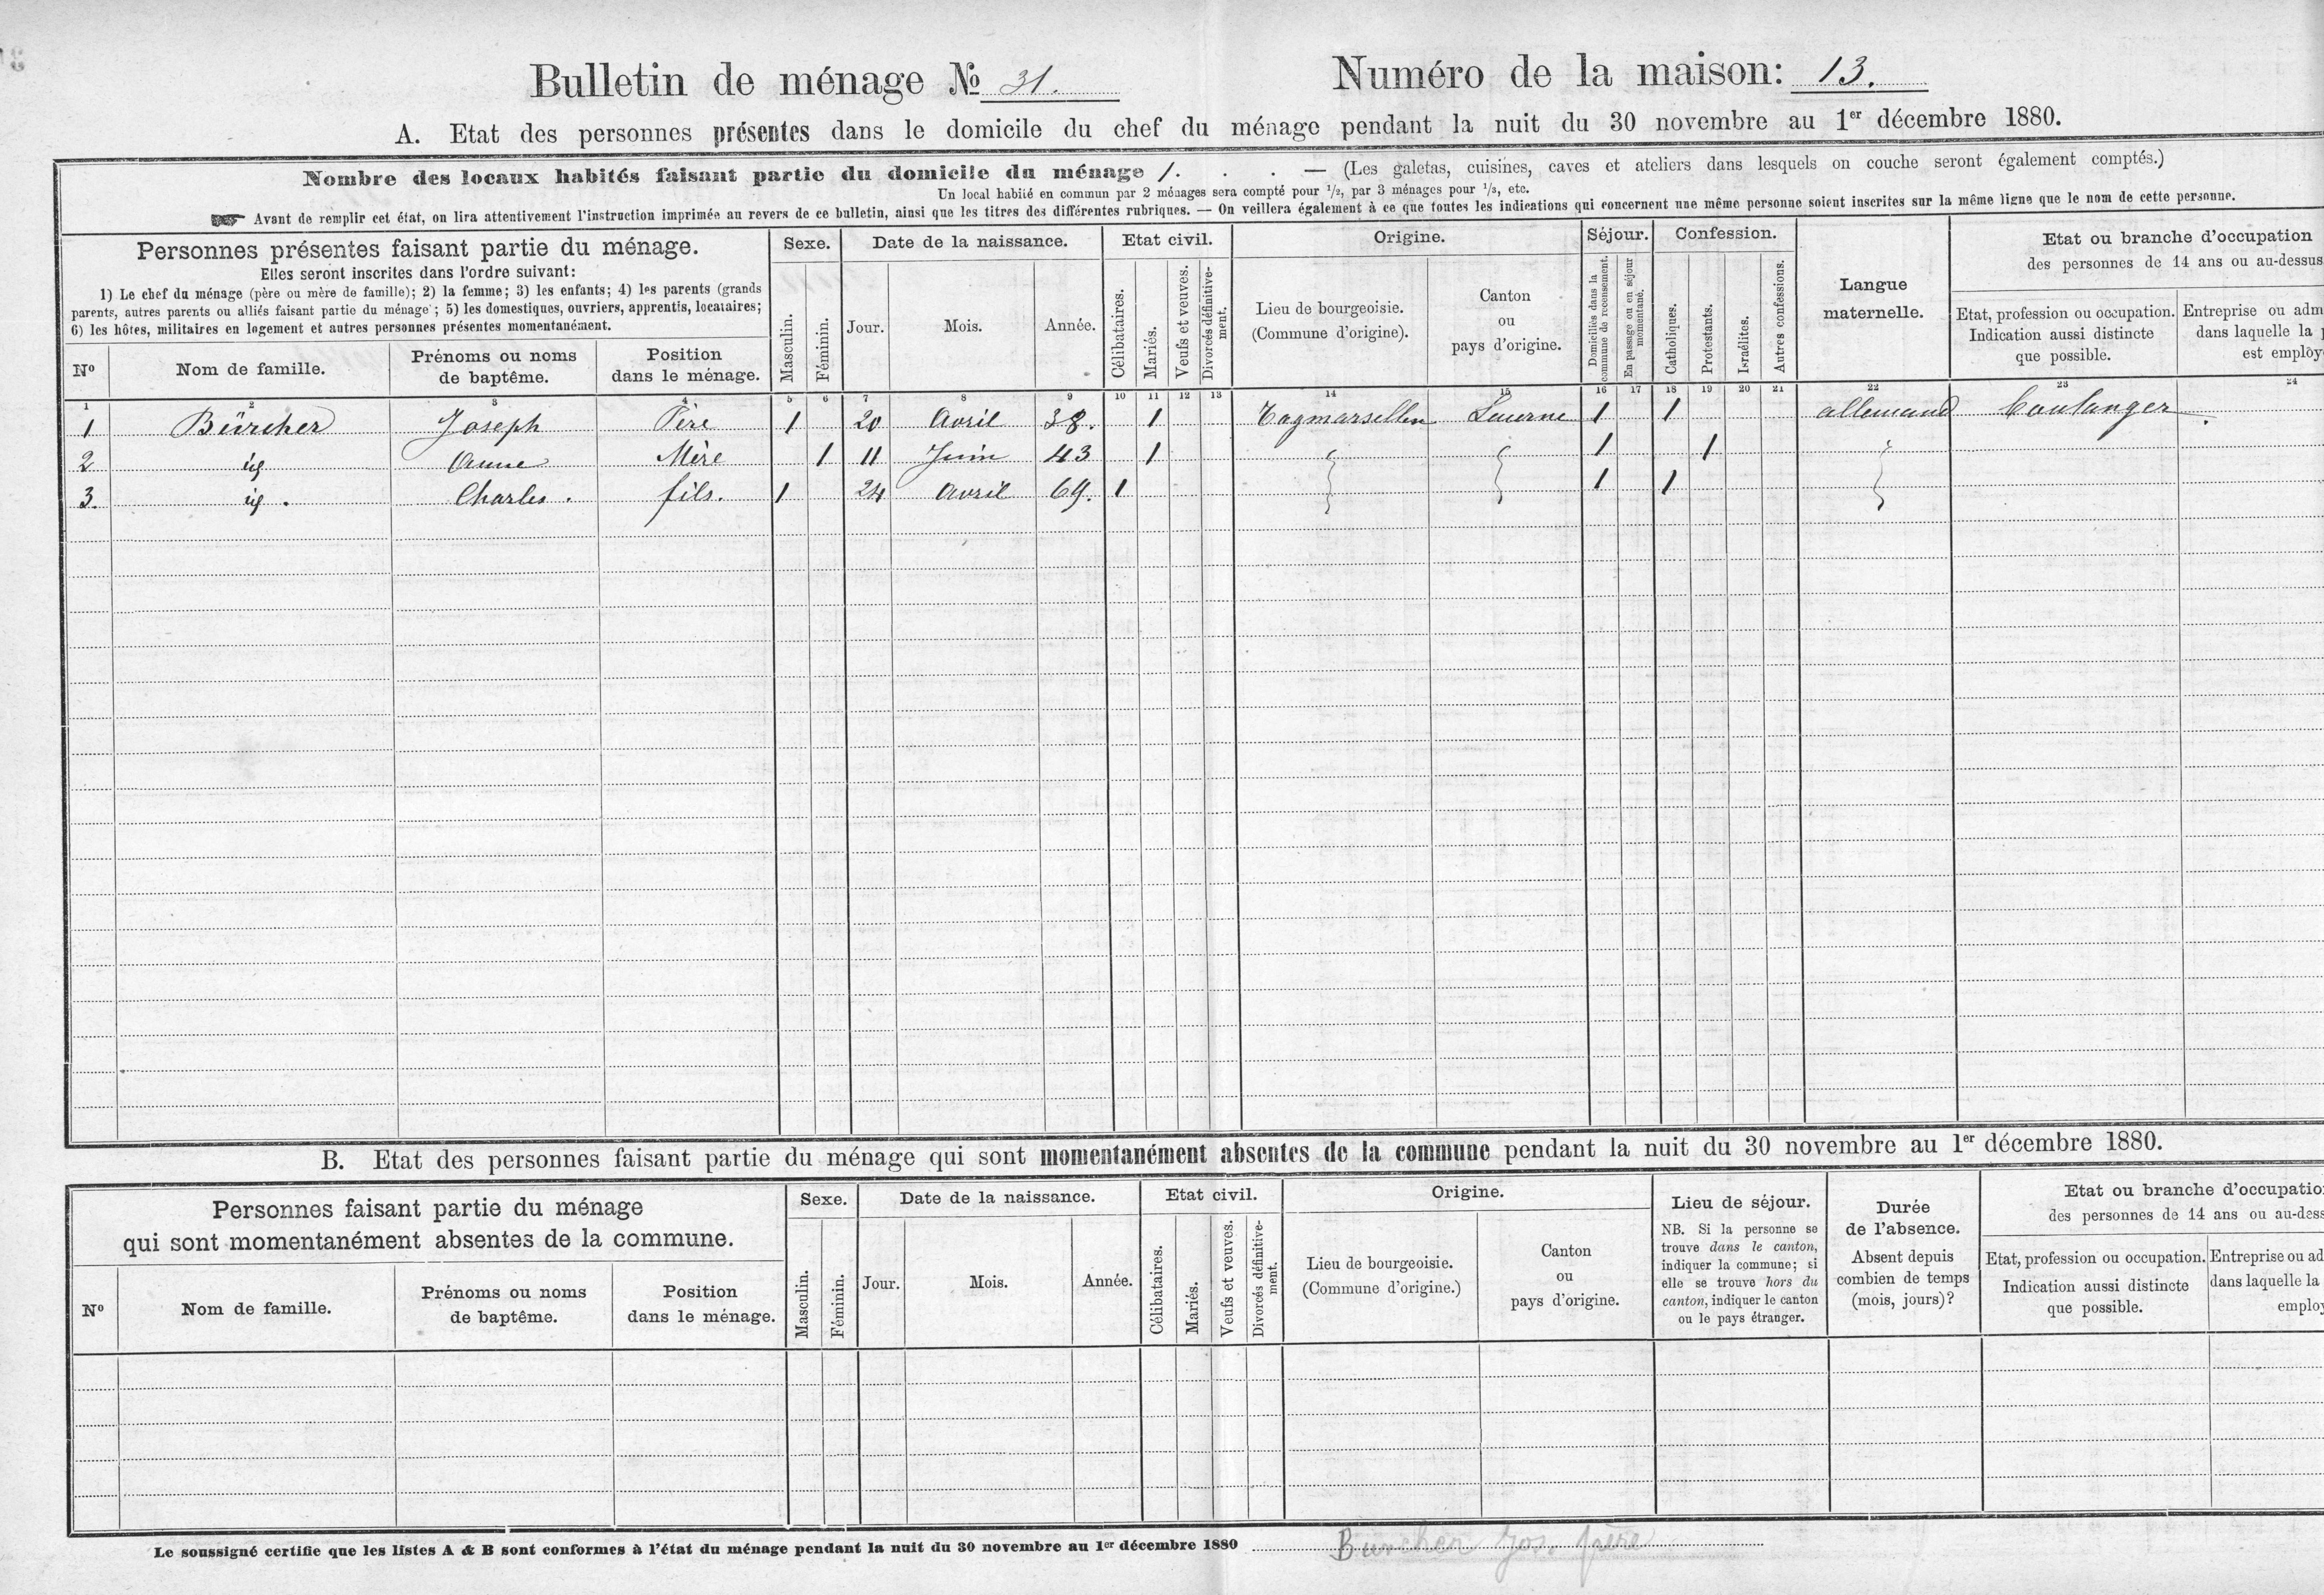 Bulletin de ménage № 31.
Numéro de la maison: 13.
A. Etat des personnes présentes dans le domicile du chef du ménage pendant la nuit du 30 novembre au 1er décembre 1880.
Nombre des locaux habités faisant partie du domicile du ménage 1. . . — (Les galetas, cuisines, caves et ateliers dans lesquels on couche seront également comptés.)
Un local habité en commun par 2 ménages sera compté pour 1/2, par 3 ménages pour 1/3, etc.
☛ Avant de remplir cet état, on lira attentivement l'instruction imprimée au revers de ce bulletin, ainsi que les titres des différentes rubriques. — On veillera également à ce que toutes les indications qui concernent une même personne soient inscrites sur la même ligne que le nom de cette personne.
Personnes présentes faisant partie du ménage.
Elles seront inscrites dans l'ordre suivant:
1) Le chef du ménage (père ou mère de famille); 2) la femme; 3) les enfants; 4) les parents (grands
parents, autres parents ou alliés faisant partie du ménage; 5) les domestiques, ouvriers, apprentis, locataires;
6) les hôtes, militaires en logement et autres personnes présentes momentanément.
No
Nom de famille.
Prénoms ou noms
de baptême.
Position
dans le ménage.
Sexe.
Masculin.
Féminin.
Date de la naissance.
Jour.
Mois.
Année.
Etat civil.
Célibataires.
Mariés.
Veufs et veuves.
Divorcés définitive-
ment.
Origine.
Lieu de bourgeoisie.
(Commune d'origine).
Canton
ou
pays d'origine.
Séjour.
Domiciliés dans la
commune de recensement.
En passage ou en séjour
momentané.
Confession.
Catholiques.
Protestants.
Israélites.
Autres confessions.
Langue
maternelle.
Etat ou branche d'occupation
des personnes de 14 ans ou au-dessus
Etat, profession ou occupation.
Indication aussi distincte
que possible.
Entreprise ou adm
dans laquelle la p
est employ
1 2 3 4 5 6 7 8 9 10 11 12 13 14 15 16 17 18 19 20 21 22 23 24
1 Bürcher Joseph Père 1 20 Avril 38. 1 Tagmarsellen Lucerne 1 1 allemand boulanger
2 id Anne Mère 1 11 Juin 43 1 1 1
3. id. Charles. fils. 1 24 Avril 69. 1 1 1
B. Etat des personnes faisant partie du ménage qui sont momentanément absentes de la commune pendant la nuit du 30 novembre au 1er décembre 1880.
Personnes faisant partie du ménage
qui sont momentanément absentes de la commune.
No
Nom de famille.
Prénoms ou noms
de baptême.
Position
dans le ménage.
Sexe.
Masculin.
Féminin.
Date de la naissance.
Jour.
Mois.
Année.
Etat civil.
Célibataires.
Mariés.
Veufs et veuves.
Divorcés définitive-
ment.
Origine.
Lieu de bourgeoisie.
(Commune d'origine.)
Canton
ou
pays d'origine.
Lieu de séjour.
NB. Si la personne se
trouve dans le canton,
indiquer la commune; si
elle se trouve hors du
canton, indiquer le canton
ou le pays étranger.
Durée
de l'absence.
Absent depuis
combien de temps
(mois, jours)?
Etat ou branche d'occupatio
des personnes de 14 ans ou au-dess
Etat, profession ou occupation.
Indication aussi distincte
que possible.
Entreprise ou ad
dans laquelle la
employ
Le soussigné certifie que les listes A & B sont conformes à l'état du ménage pendant la nuit du 30 novembre au 1er décembre 1880 Burcher Jos. père